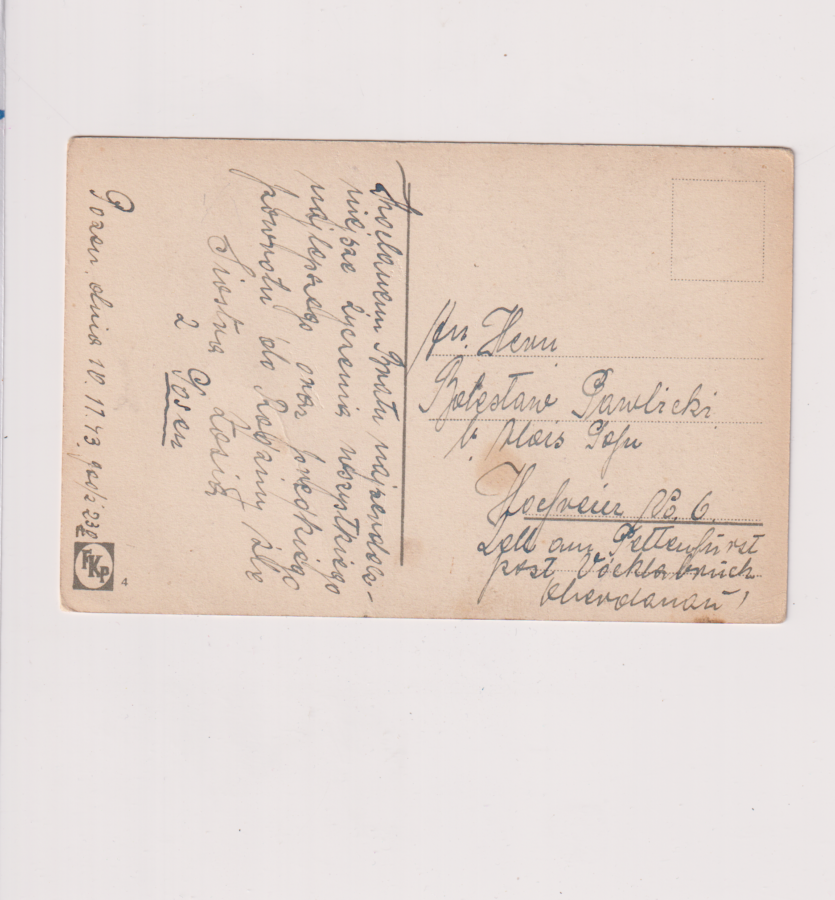 Kochanemu Bratu najserdecz-
niejsze życzenia wszystkiego
najlepszego oraz prędkiego
powrotu do Rodziny śle
Siostra Zosia
z Posen
Posen, dnia 10.11.43 godz 23
FKP
4
An. Herrn
Bolesław Pawlicki
b. Alois
No. 6.
Zell am Pettenfürst
post Vöcklabruck
Oberdanau